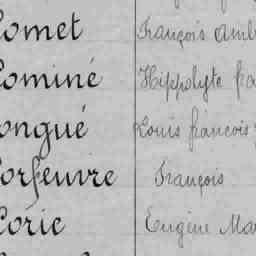 Comet François Amb
Cominé Hippolyte fra
Congué Louis françois
Corfeuvre François
Corie Eugène Mar